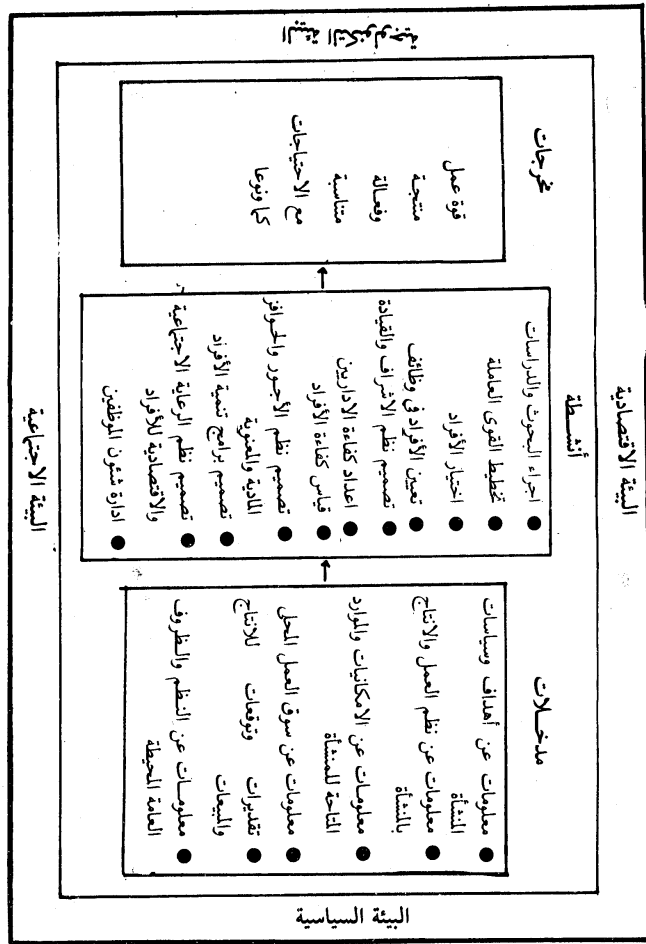 البيئة الاقتصادية
مدخلات
معلومات عن أهداف وسياسات
المنشأة
معلومات عن نظم العمل والانتاج
بالمنشأة
معلومات عن الامكانيات والموارد
المتاحة للمنشأة
معلومات عن سوق العمل المحلى
تقديرات وتوقعات للانتاج
والمبيعات
معلومات عن النظم والظروف
العامة المحيطة
أنشطة
اجراء البحوث والدراسات
تخطيط القوى العاملة
اختيار الأفراد
تعيين الأفراد فى وظائف
تصميم نظم الاشراف والقيادة
اعداد كفاءة الاداريين
قياس كفاءة الأفراد
تصميم نظم الأجور والحوافز
المادية والمعنوية
تصميم برامج تنمية الأفراد
تصميم نظم الرعاية الاجتماعية
والاقتصادية للأفراد
ادارة شئون الموظفين
مخرجات
قوة عمل
منتجة
وفعالة
متناسبة
مع الاحتياجات
كما ونوعا
البيئة السياسية
البيئة التكنولوجية
البيئة الاجتماعية